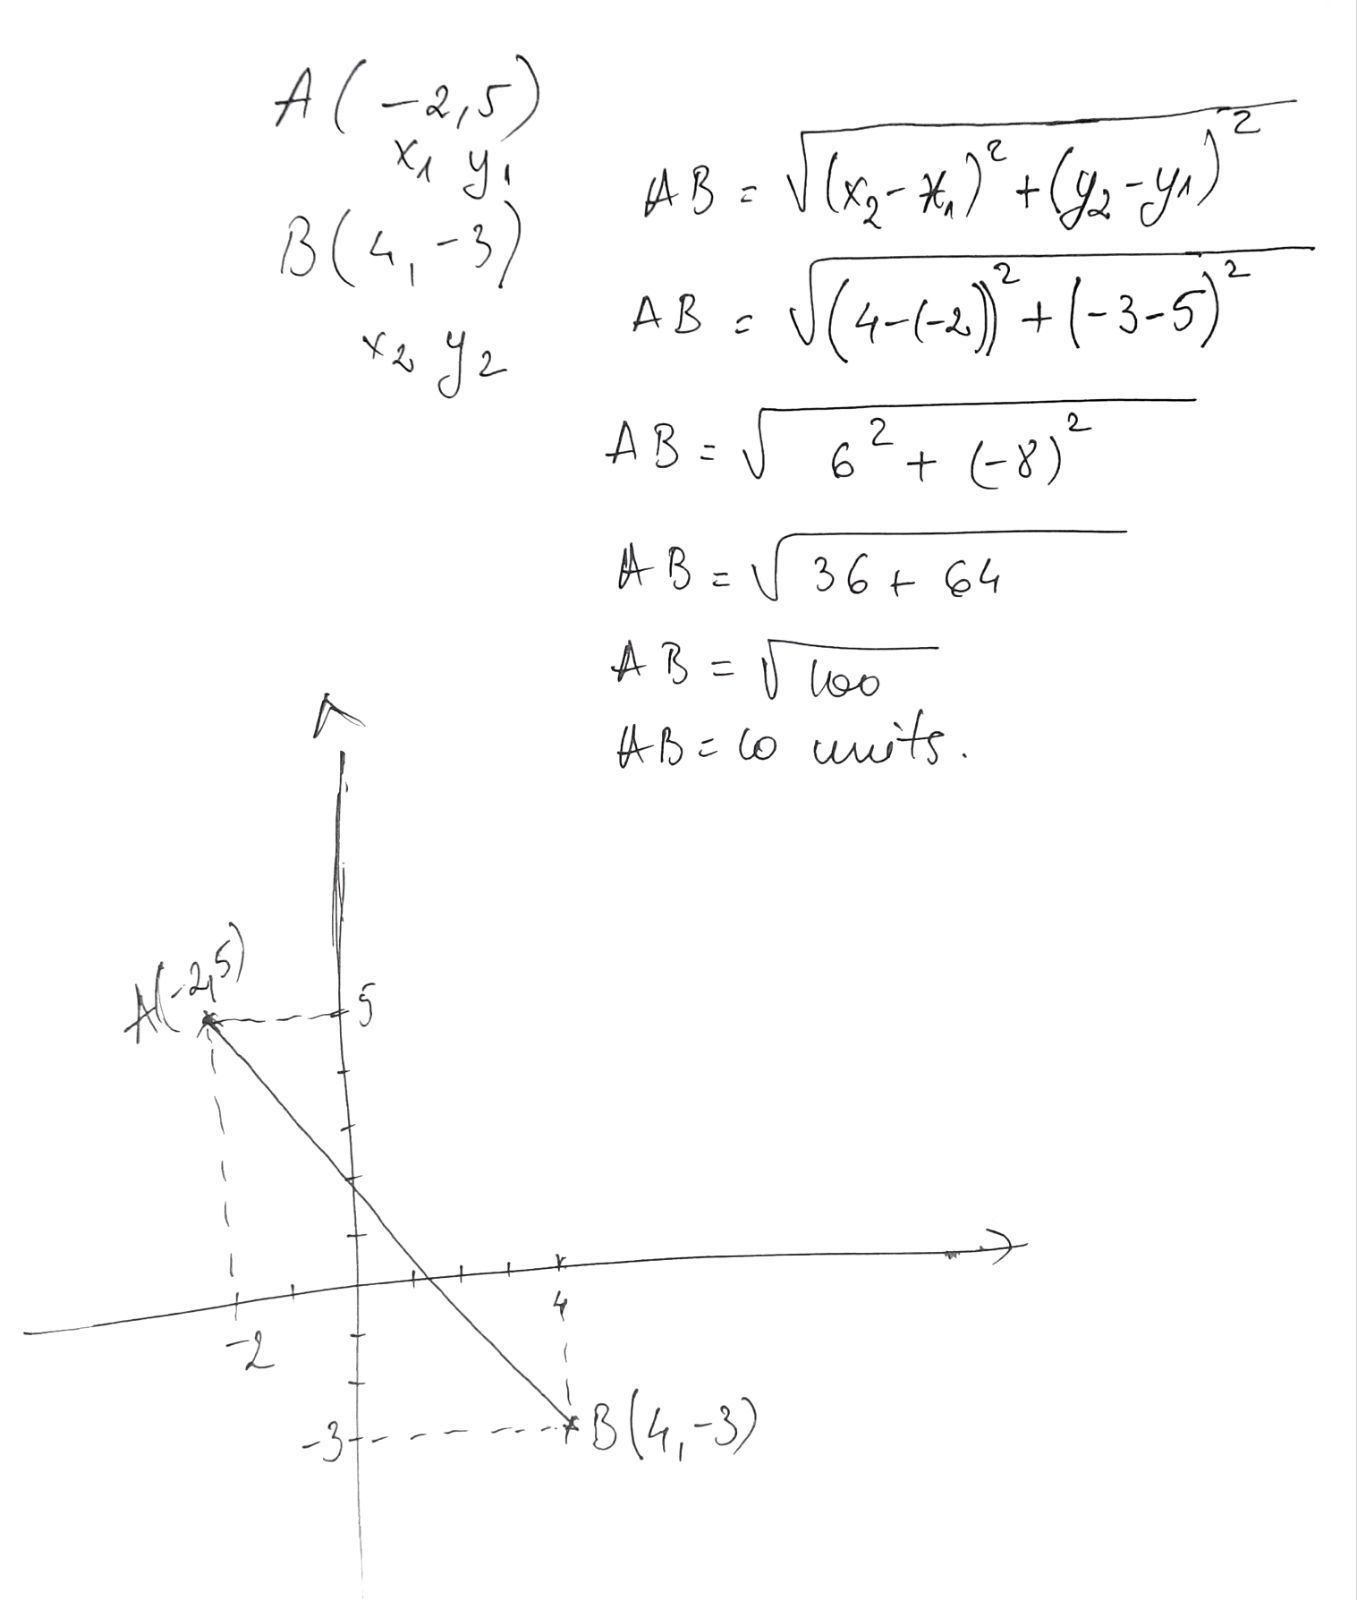 A(-2,5)
x₁ y₁
B(4,-3)
x₂ y₂
AB = √((x₂-x₁)²+(y₂-y₁)²)
AB = √((4-(-2))²+(-3-5)²)
AB = √(6²+(-8)²)
AB = √(36+64)
AB = √100
AB = 10 units.
A(-2,5)
5
4
-2
-3
B(4,-3)